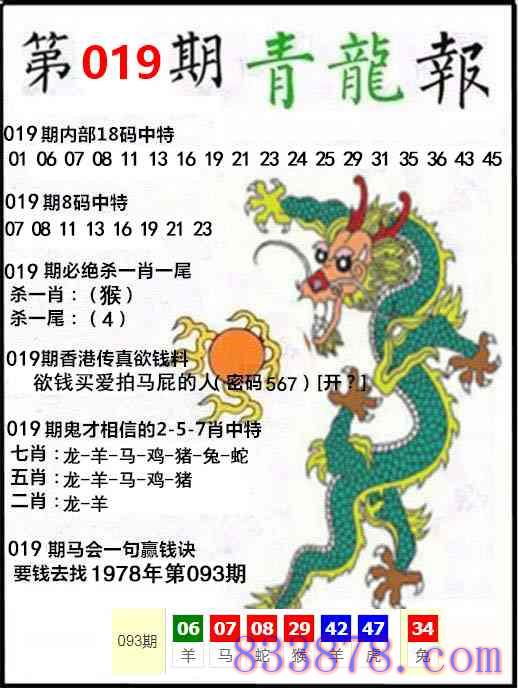 第019期青龍報
019期内部18码中特
01 06 07 08 11 13 16 19 21 23 24 25 29 31 35 36 43 45
019期8码中特
07 08 11 13 16 19 21 23
019期必绝杀一肖一尾
杀一肖：（猴）
杀一尾：（4）
019期香港传真欲钱料
欲钱买爱拍马屁的人(密码567)[开？]
019期鬼才相信的2-5-7肖中特
七肖：龙-羊-马-鸡-猪-兔-蛇
五肖：龙-羊-马-鸡-猪
二肖：龙-羊
019期马会一句赢钱诀
要钱去找1978年第093期
093期 06 07 08 29 42 47 34
羊 马 蛇 猴 羊 虎 兔
833878.com